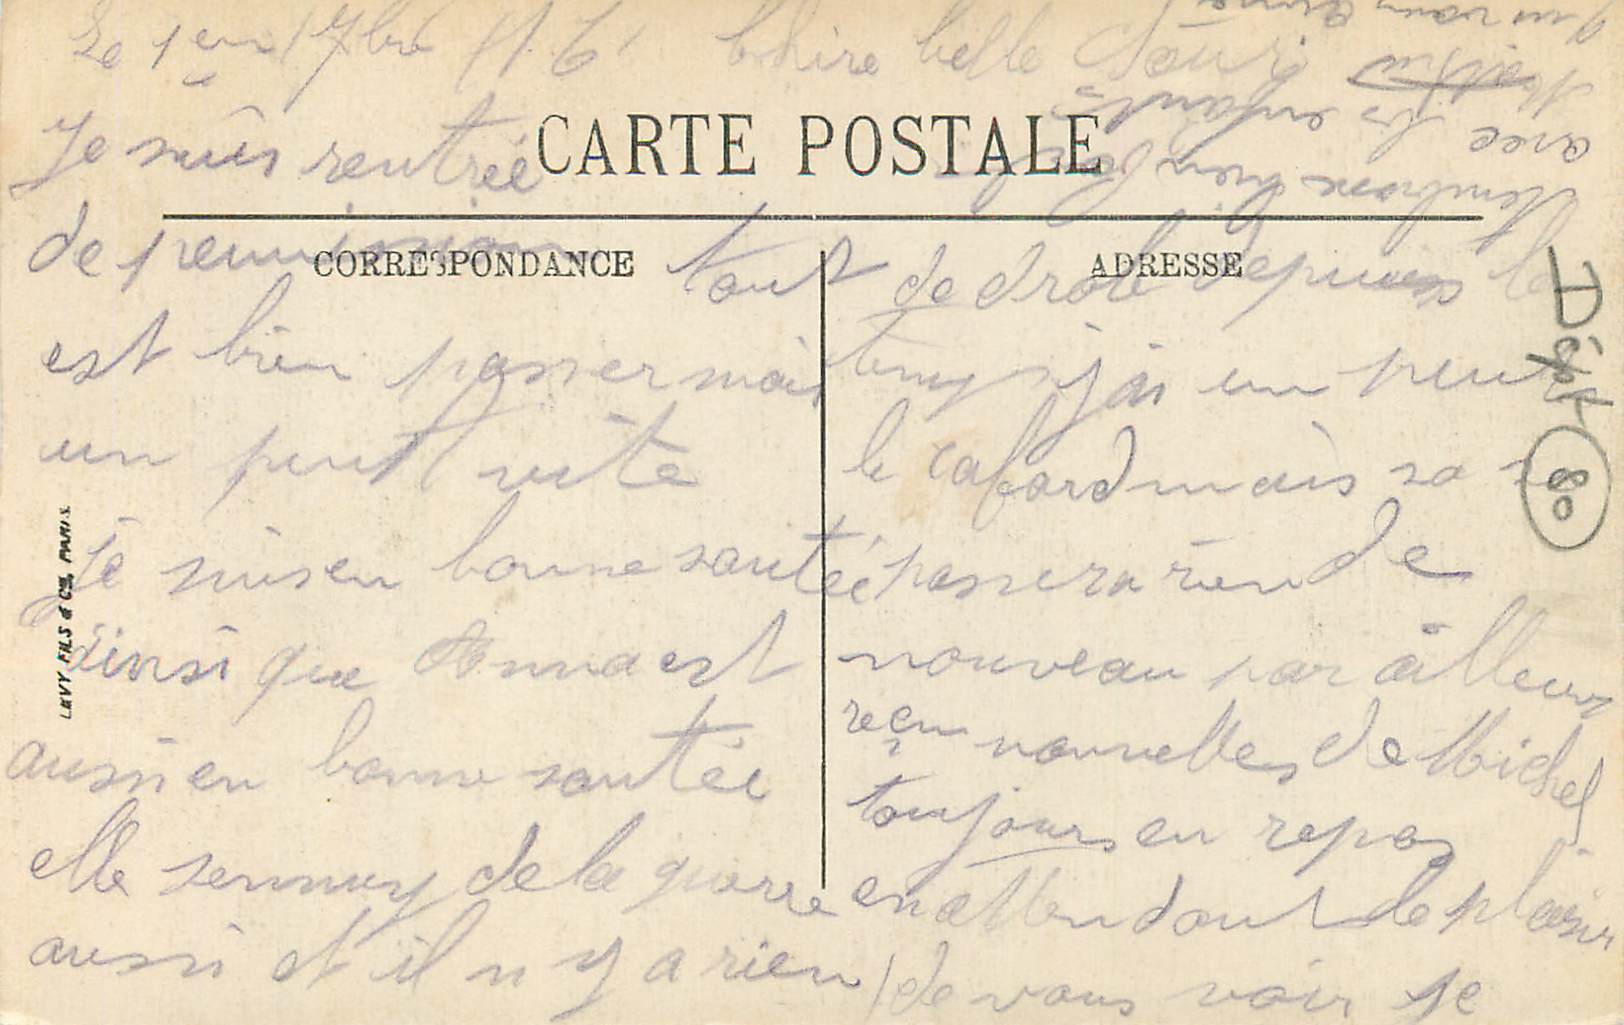 Le 1er 7bre 16 Chère belle Soeur
CARTE POSTALE
Je suis rentrée
CORRESPONDANCE
de permission tout
est bien passer mais
un peut vite
je suis en bonne santée
ainsi que Anna est
aussi en bonne santée
elle sennuy de la guerre
aussi et il n y a rien
ADRESSE
de drole depuis le
temps jai un peut
le cafard mais sa
passera rien de
nouveau par ailleurs
reçu nouvelles de Michel
toujours en repos
en attendant le plaisir
de vous voir je
bien
avec les enfants
qui vous aime
LEVY FILS & Cie PARIS.
Dépt
80